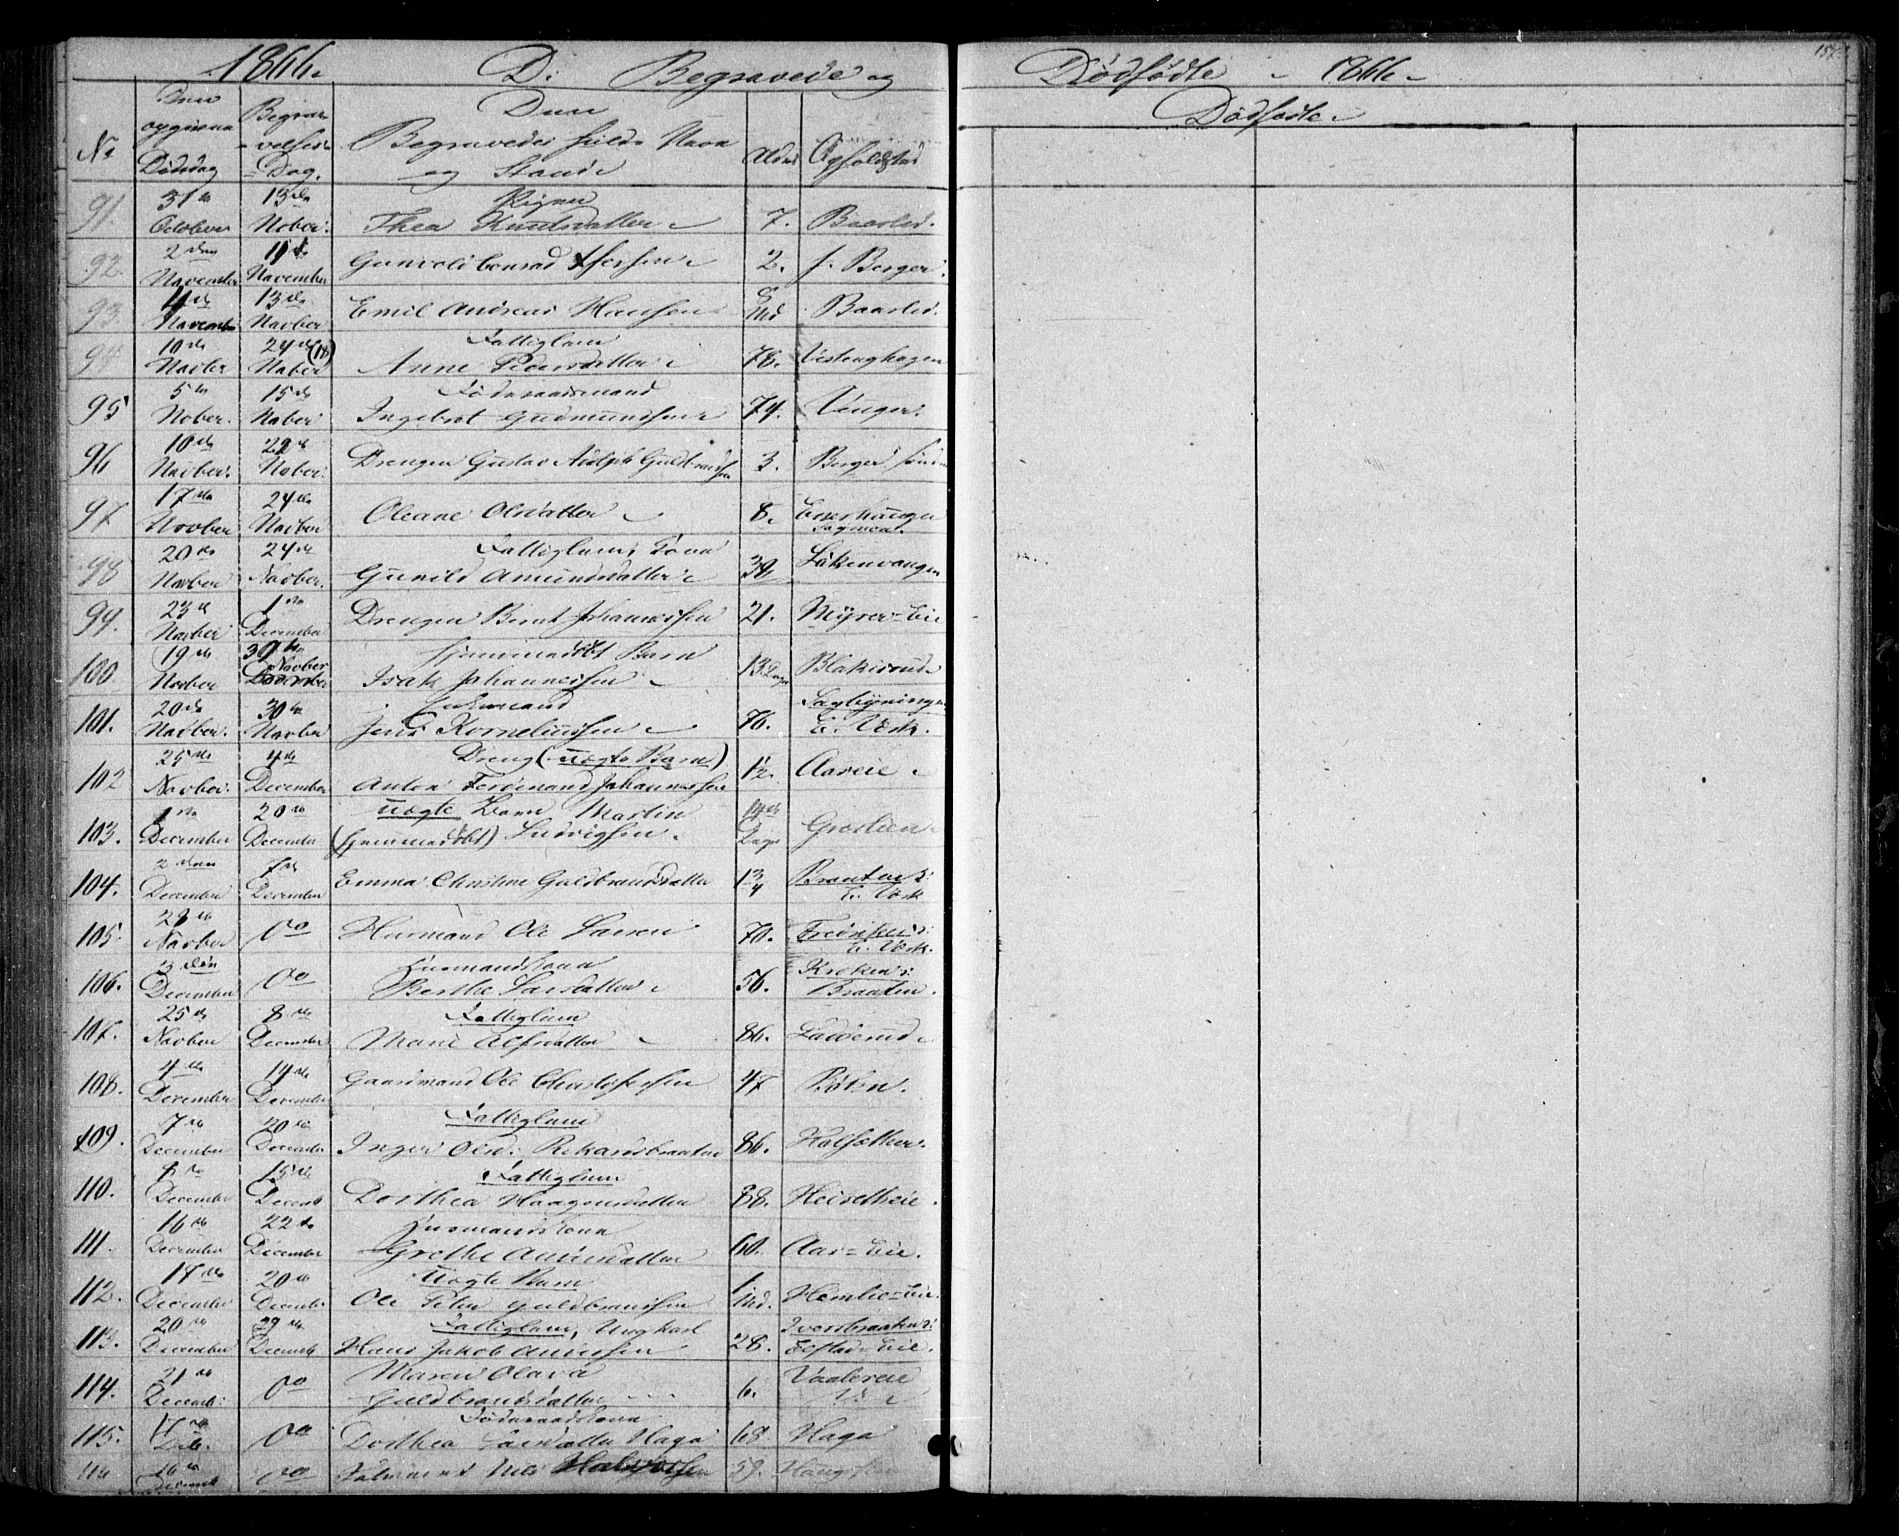 1866.
De Begravede og
Dødfødte - 1866 -
157.
No
Den opgivne Dødsdag
Begravelses Dag.
Den Begravedes fulde Navn og Stand
Alder
Opholdssted
Dødfødte
91. 31te October 13de Novber. Pigen Thea Knudsdatter 7. Baastad.
92. 2den November November Gunvald Conrad 2. s. Berger.
93. November 13de Novber Emil Andreas Hansen 8 Md Baastad.
94 10de Novber 24de (18) Novber Fattiglem Anne Pedersdatter 78. Vestenghagen
95 5te Nober. 15de Nober Føderaadsmand Ingebret Gudmundsen 74. Unger.
96 10de Novber. Nober. Drengen Gustav Adolph Guldbrandsen 3. Berger søndre
97 17de Novber 24de Novber Oleane Olsdatter 8.
98 20de Novber 24de Novber. Fattiglem, Kone Gunild Amundsdatter 39 Løkenvangen
99. 23de Novber 1ste December Drengen Bernt Johannessen 21. Myrer-Eie
100. 19de Novber 30te Novber hjemmedøbt Barn Isak Johannessen 13 Dage Blakisrud
101. 20de Novber. 30te Novber Enkemand Jens Korneliussen 76. E. Værk.
102 25de Novber. 4de December Dreng (uægte Barn) Anton Ferdinand Johannessen 12. Aaseie
103. 1ste December 20de December uægte Barn Martin (hjemmedøbt) Ludvigsen 14 Dage
104. 2den December 7de December Emma Christine Guldbrandsdatter 1 3/4 Braaten i E. Værk
105. Novber do Husmand Ole Larsen 70. E. Værk.
106. 3den December do Husmandskone Berthe Larsdatter 56. Kroken i Braaten.
107. 25de Novber 8de December Fattiglem Marie Olsdatter 86.
108. 4de December 14de December Gaardmand Ole Christophersen 47 Bølen.
109. 7de December 20de December Fattiglem Inger Olsd: 86. Kalsæther.
110. December 15de Decemb Fattiglem Dorthea Haagensdatter 88.
111. 16de December 22de December Husmandskone Grethe Andersdatter 60. Aas-Eie.
112. 18de December 20de December Uægte Barn Ole Peter Guldbrandsen 1 Md. Hemlie-Eie.
113. 20de December 29de Decemb Fattiglem, Ungkarl Hans Jakob Andersen 28. Iversbraaten i Eie.
114. 21de Decemb. do Maren Olava Guldbrandsdatter 6.
115. Dcb. do Føderaadskone Dorthea Larsdatter Haga 68 Haga
116 16de Decemb do Nils Halvorsen 59.